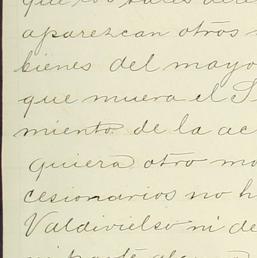 aparezcan otros
bienes del mayo
que muera el S
miento de la ac
quiera otro mo
cesionarios no h
Valdivielso ni de